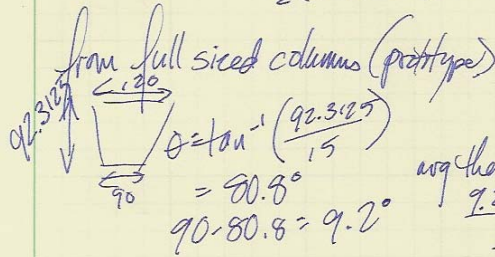 from full sized columns (prototype)
120
92.3125
90
θ = tan⁻¹ (92.3125/15)
= 80.8°
90-80.8 = 9.2°
avg the
9.2